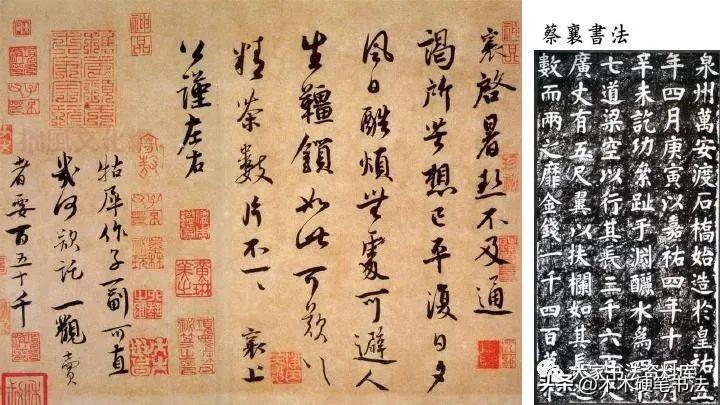 蔡襄書法
襄啓暑熱不及通
謁所苦想已平復日夕
風日酷煩無處可避人
生韁鎖如此可歎〻
精茶數片不一〻 襄上
公謹左右
牯犀作子一副可直
幾何欲託一觀賣
者要百五十千
泉州萬安渡石橋始造於皇祐五
年四月庚寅以嘉祐四年十二月
辛未訖功絫趾于淵釃水為四
七道梁空以行其長三千六百
廣丈有五尺翼以扶欄如其長之
數而兩之靡金錢一千四百萬
大家书法资料库
头条 @木木硬笔书法